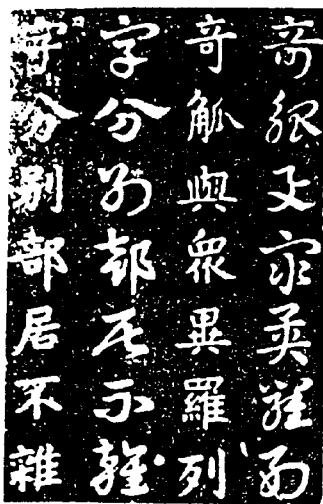 奇觚與衆異羅列
奇觚與衆異羅列
字分別部居不雜
字分別部居不雜